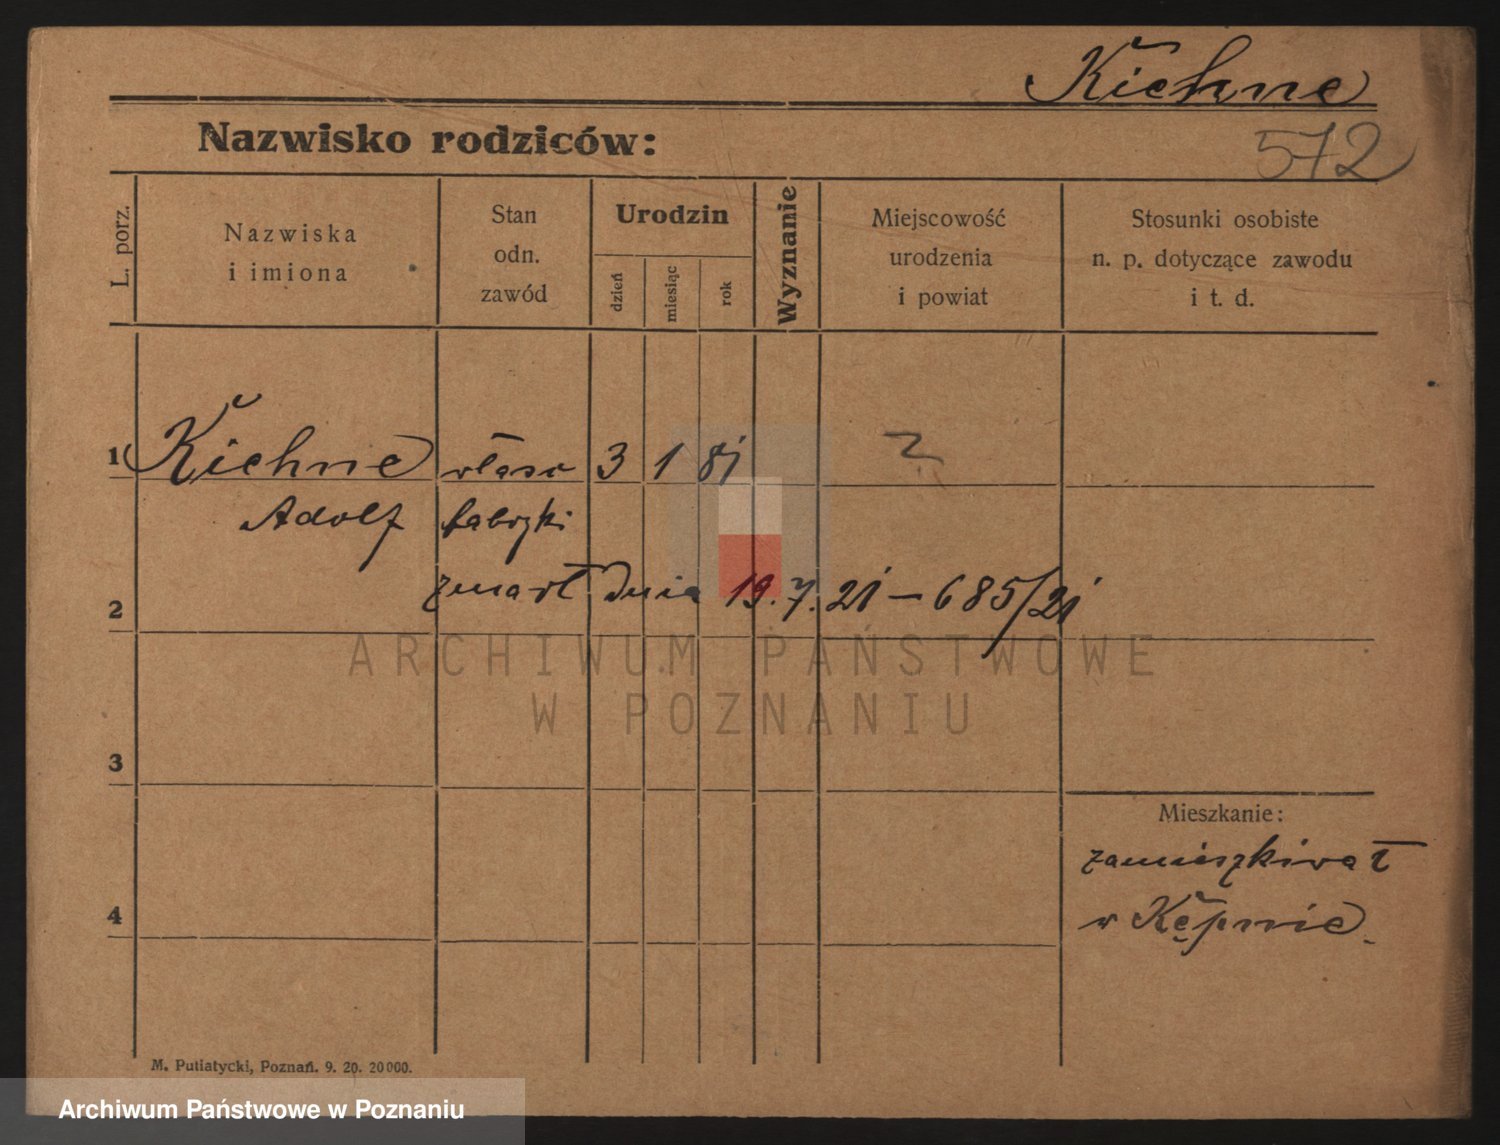 Kiehne
Nazwisko rodziców:
572
L. porz.
Nazwiska
i imiona
Stan
odn.
zawód
Urodzin
dzień
miesiąc
rok
Wyznanie
Miejscowość
urodzenia
i powiat
Stosunki osobiste
n. p. dotyczące zawodu
i t. d.
1 Kiehne własc 3 1 81 ?
Adolf fabryki
zmarł dnia 19.7.21 – 685/21
2
ARCHIWUM PAŃSTWOWE
W POZNANIU
3
Mieszkanie:
zamieszkiwał
4
w Kępnie.
M. Putiatycki, Poznań. 9. 20. 20000.
Archiwum Państwowe w Poznaniu